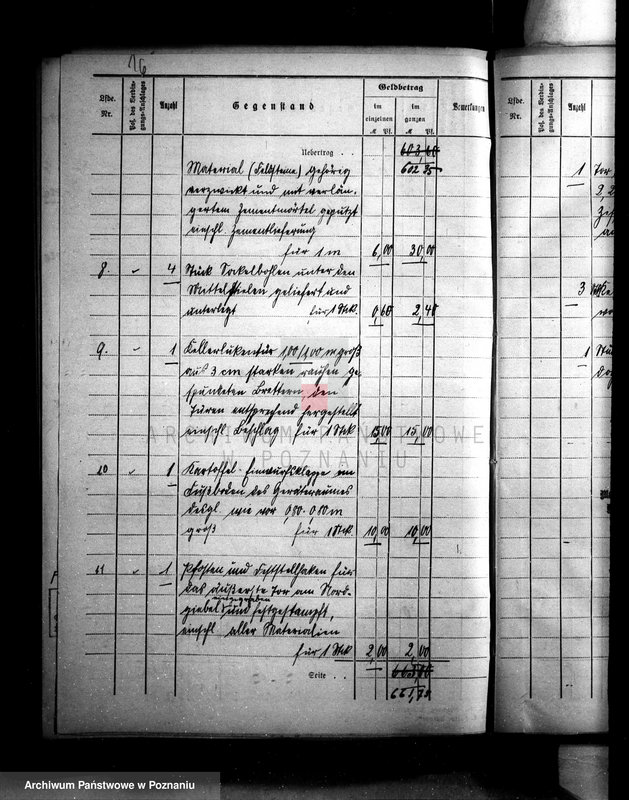 16
Lfde. Nr.
Pos. des Verdin-
gungs-Anschlages
Anzahl
Gegenstand
Geldbetrag
im einzelnen
ℳ Pf.
im ganzen
ℳ Pf.
Bemerkungen
Uebertrag . . 603,60
Material (Feldsteine) gehörig 602 35
verzwickt und mit verlän-
gertem Zementmörtel geputzt
einschl. Zementlieferung
für 1 m 6,00 30,00
8. 4 Stück Sockelbohlen unter den
Mittelstielen geliefert und
unterlegt für 1 Stck. 0,60 2,40
9. 1 Kellerlukentür 1,00/1,00 m groß
aus 3 cm starken rauhen ge-
spundeten Brettern, den
Türen entsprechend hergestellt
einschl. Beschlag für 1 Stck 15,00 15,00
10 1 Kartoffel-Einwurfsklappe im
Fußboden des Geräteraumes
desgl. wie vor 0,80·0,80 m
groß für 1 Stck. 10,00 10,00
11 1 Pfosten und Feststellhaken für
das äußerste Tor am Nord-
giebel, und festgestampft,
einschl. aller Materialien
für 1 Stck 2,00 2,00
Seite . .
661,75
Lfde. Nr.
Pos. des Verdin-
gungs-Anschlages
Anzahl
1
3
1
ARCHIWUM PAŃSTWOWE
W POZNANIU
Archiwum Państwowe w Poznaniu